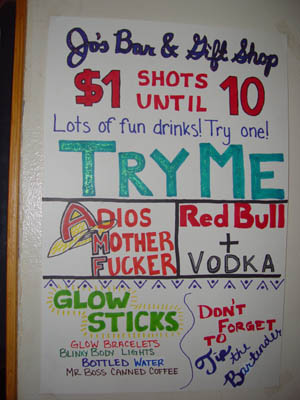 Jo's Bar & Gift Shop
$1 SHOTS UNTIL 10
Lots of fun drinks! Try one!
TRY ME
ADIOS MOTHER FUCKER
Red Bull + VODKA
GLOW STICKS
GLOW BRACELETS
BLINKY BODY LIGHTS
BOTTLED WATER
MR. BOSS CANNED COFFEE
DON'T FORGET TO
Tip the Bartender